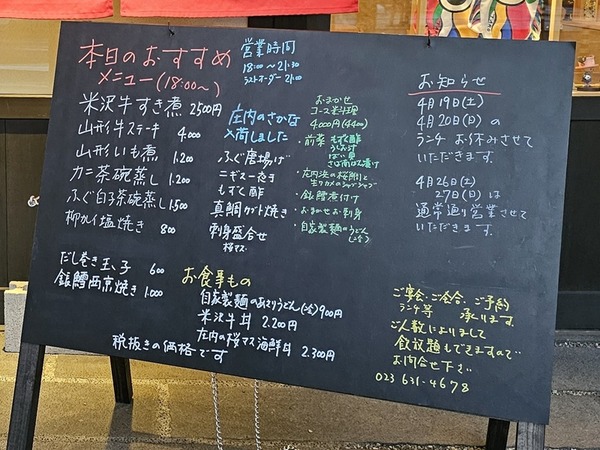 本日のおすすめ
メニュー(18:00〜)
米沢牛すき煮 2500円
山形牛ステーキ 4.000
山形いも煮 1.200
カニ茶碗蒸し 1.200
ふぐ白子茶碗蒸し 1.500
柳カレイ塩焼き 800
だし巻き玉子 600
銀鱈西京焼き 1.000
営業時間
18:00〜21:30
ラストオーダー 21:00
庄内のさかな
入荷しました
ふぐ唐揚げ
ニギス一夜干き
もずく酢
真鯛カブト焼き
刺身盛合せ
桜マス
おまかせ
コース料理
4.000円(4.400)
・前菜 もずく酢
ばい貝
さば南ばん漬け
・庄内浜の桜鯛と
生ワカメのシャブシャブ
・銀鱈煮付け
・おまかせお刺身
・自家製麺のうどん
お食事もの
自家製麺のあさりうどん 900円
米沢牛丼 2.200円
庄内の桜マス海鮮丼 2.300円
税抜きの価格です
お知らせ
4月19日(土)
4月20日(日)の
ランチ お休みさせて
いただきます。
4月26日(土)
27日(日)は
通常通り営業させて
いただきます。
ご宴会、ご会合、ご予約
ランチ等 承ります。
ご人数によりまして
飲放題もできますので
お問合せ下さい
023 631-4678